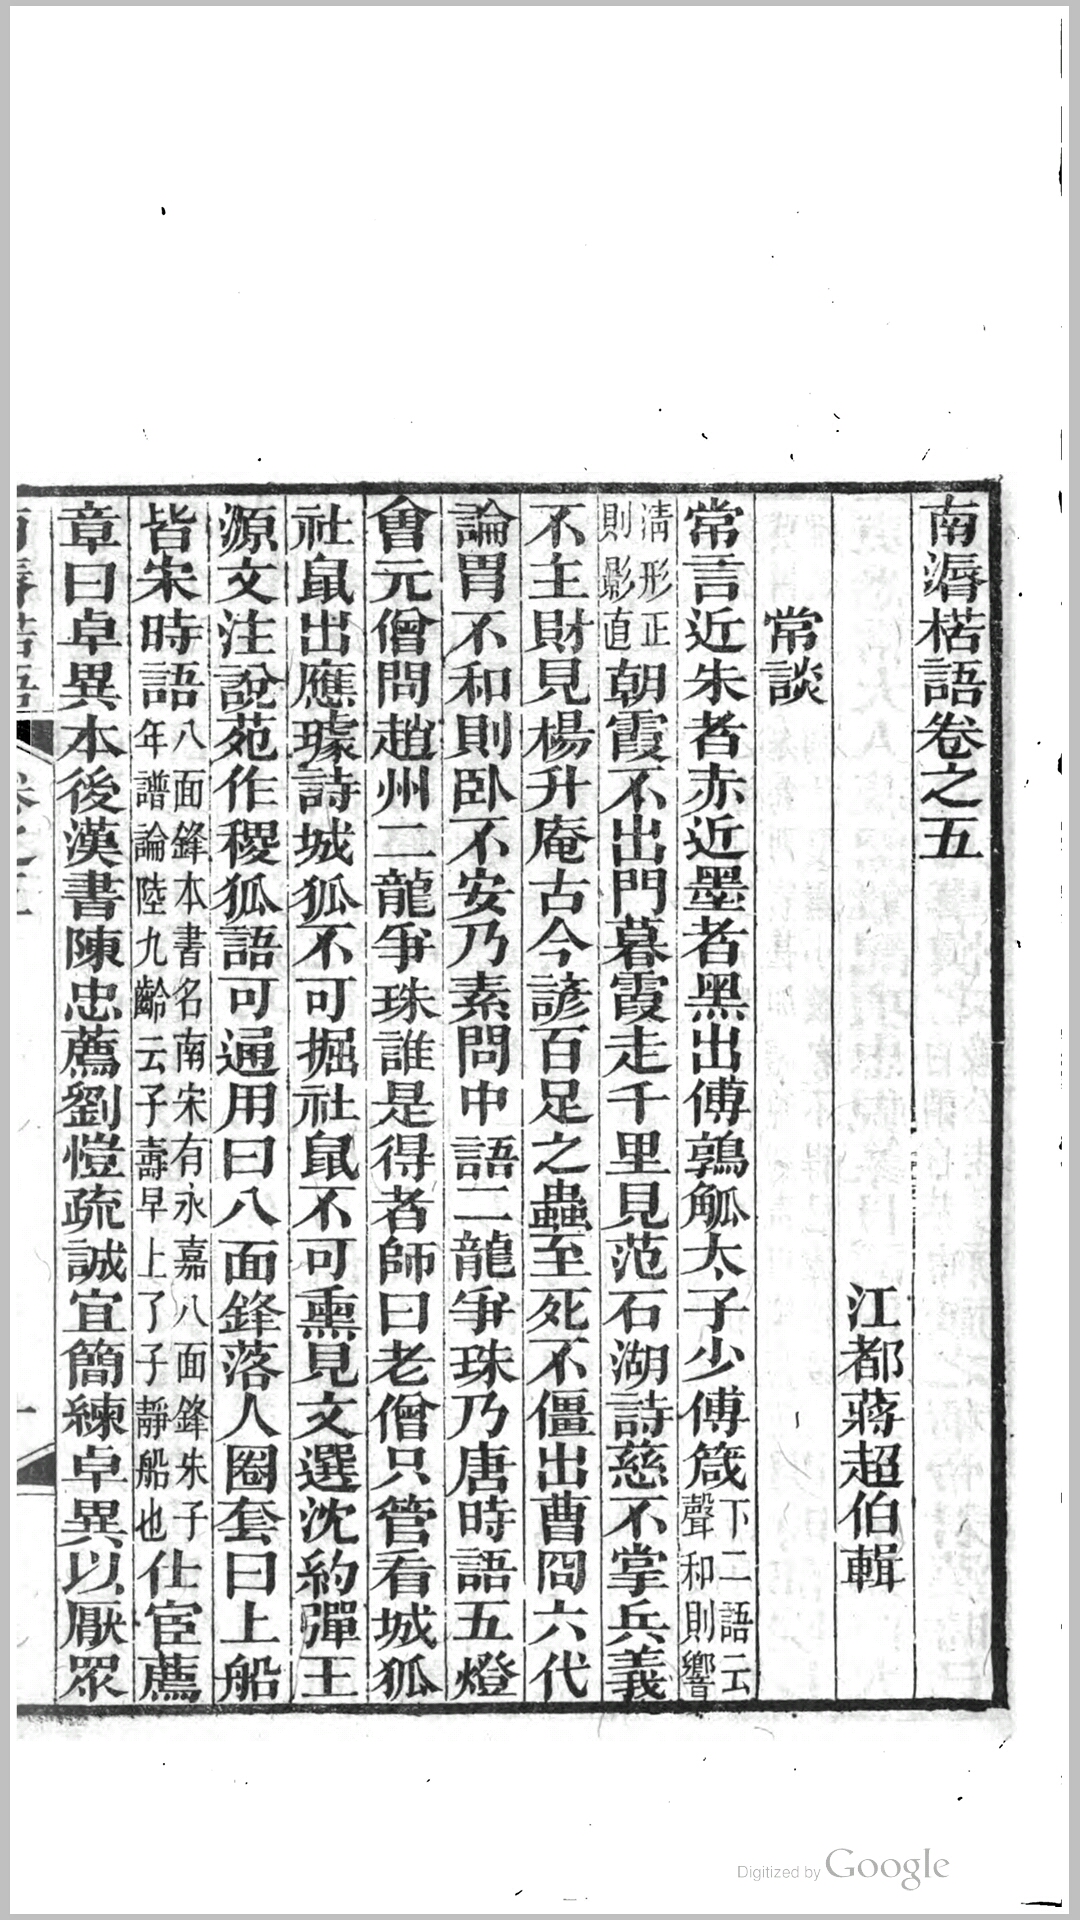 南漘楛語卷之五
江都蔣超伯輯
常談
常言近朱者赤近墨者黑出傅鶉觚太子少傅箴下二語云聲和則響
清形正則影直朝霞不出門暮霞走千里見范石湖詩慈不掌兵義
不主財見楊升庵古今諺百足之蟲至死不僵出曹冏六代
論胃不和則卧不安乃素問中語二龍爭珠乃唐時語五燈
會元僧問趙州二龍爭珠誰是得者師曰老僧只管看城狐
社鼠出應璩詩城狐不可掘社鼠不可熏見文選沈約彈王
源文注說苑作稷狐語可通用曰八面鋒落人圈套曰上船
皆宋時語八面鋒本書名南宋有永嘉八面鋒朱子年譜論陸九齡云子壽早上了子靜船也仕宦薦
章曰卓異本後漢書陳忠薦劉愷疏誠宜簡練卓異以厭眾
卷之五
一
Digitized by Google